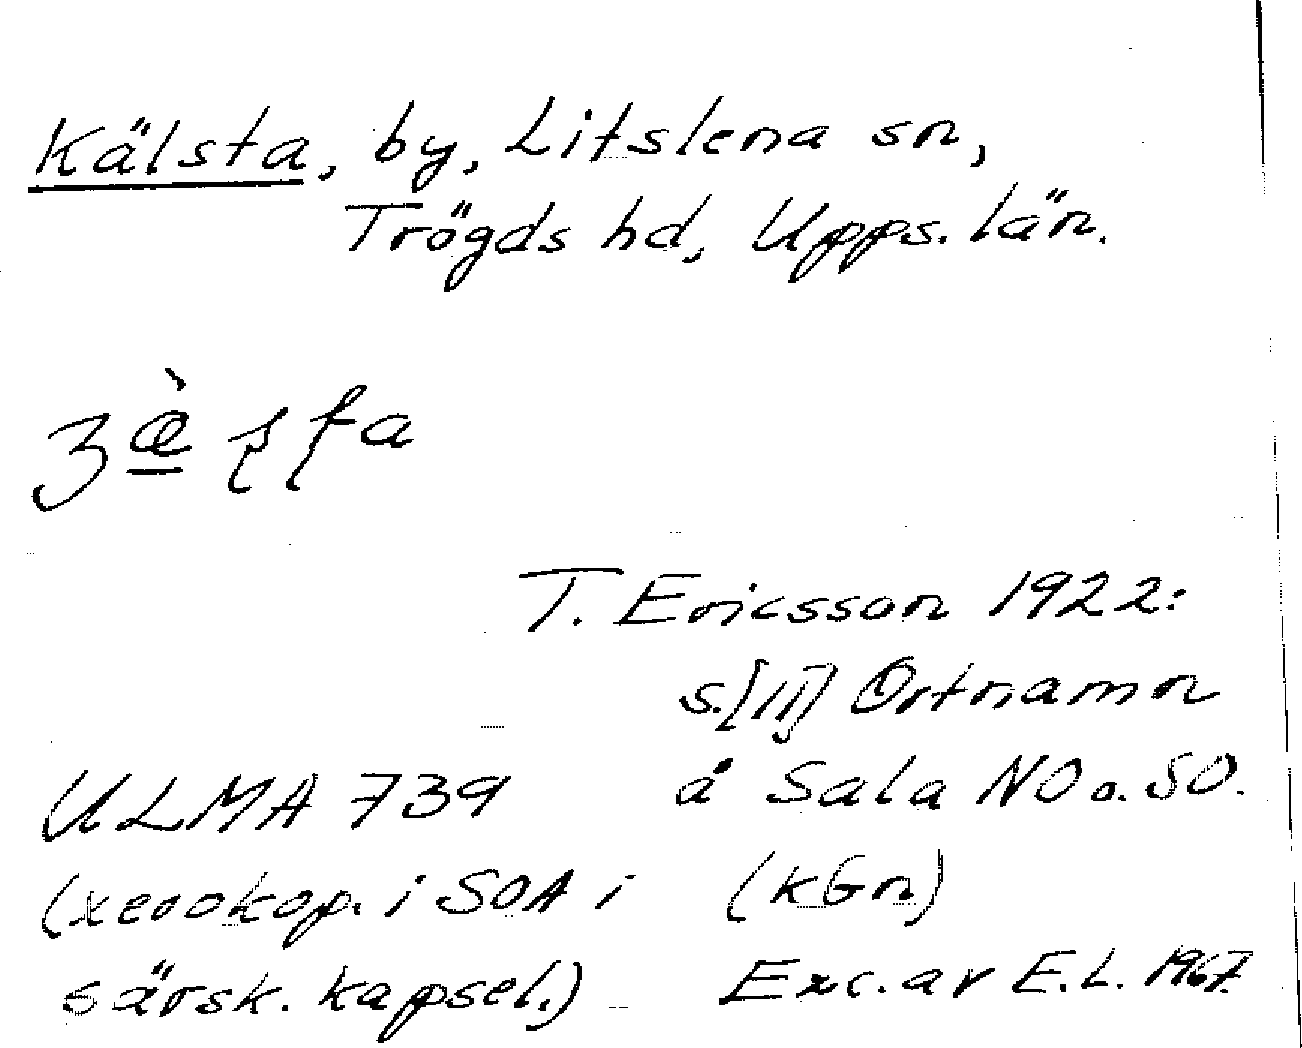 Kälsta, by, Litslena sn,
Trögds hd, Upps. län.
T. Ericsson 1922:
s.[11] Ortnamn
å Sala NO o. SO.
(KGn)
Exc. av E.L. 1967.
ULMA 739
(xerokop. i SOA i
särsk. kapsel.)